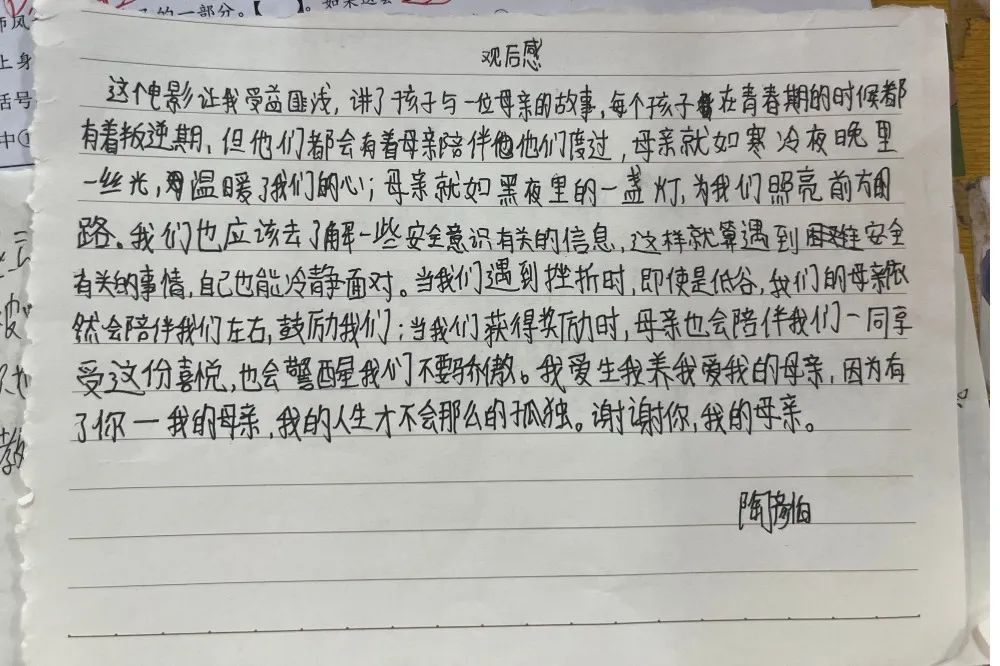 的一部分。【　】。如果这会
师风
上身
括号
中①
教
观后感
这个电影让我受益匪浅，讲了孩子与一位母亲的故事，每个孩子在青春期的时候都
有着叛逆期，但他们都会有着母亲陪伴他们度过，母亲就如寒冷夜晚里
一丝光，温暖了我们的心；母亲就如黑夜里的一盏灯，为我们照亮前方的
路。我们也应该去了解一些安全意识有关的信息，这样就算遇到安全
有关的事情，自己也能冷静面对。当我们遇到挫折时，即使是低谷，我们的母亲依
然会陪伴我们左右，鼓励我们；当我们获得奖励时，母亲也会陪伴我们一同享
受这份喜悦，也会警醒我们不要骄傲。我爱生我养我爱我的母亲，因为有
了你一我的母亲，我的人生才不会那么的孤独。谢谢你，我的母亲。
陶彦伯